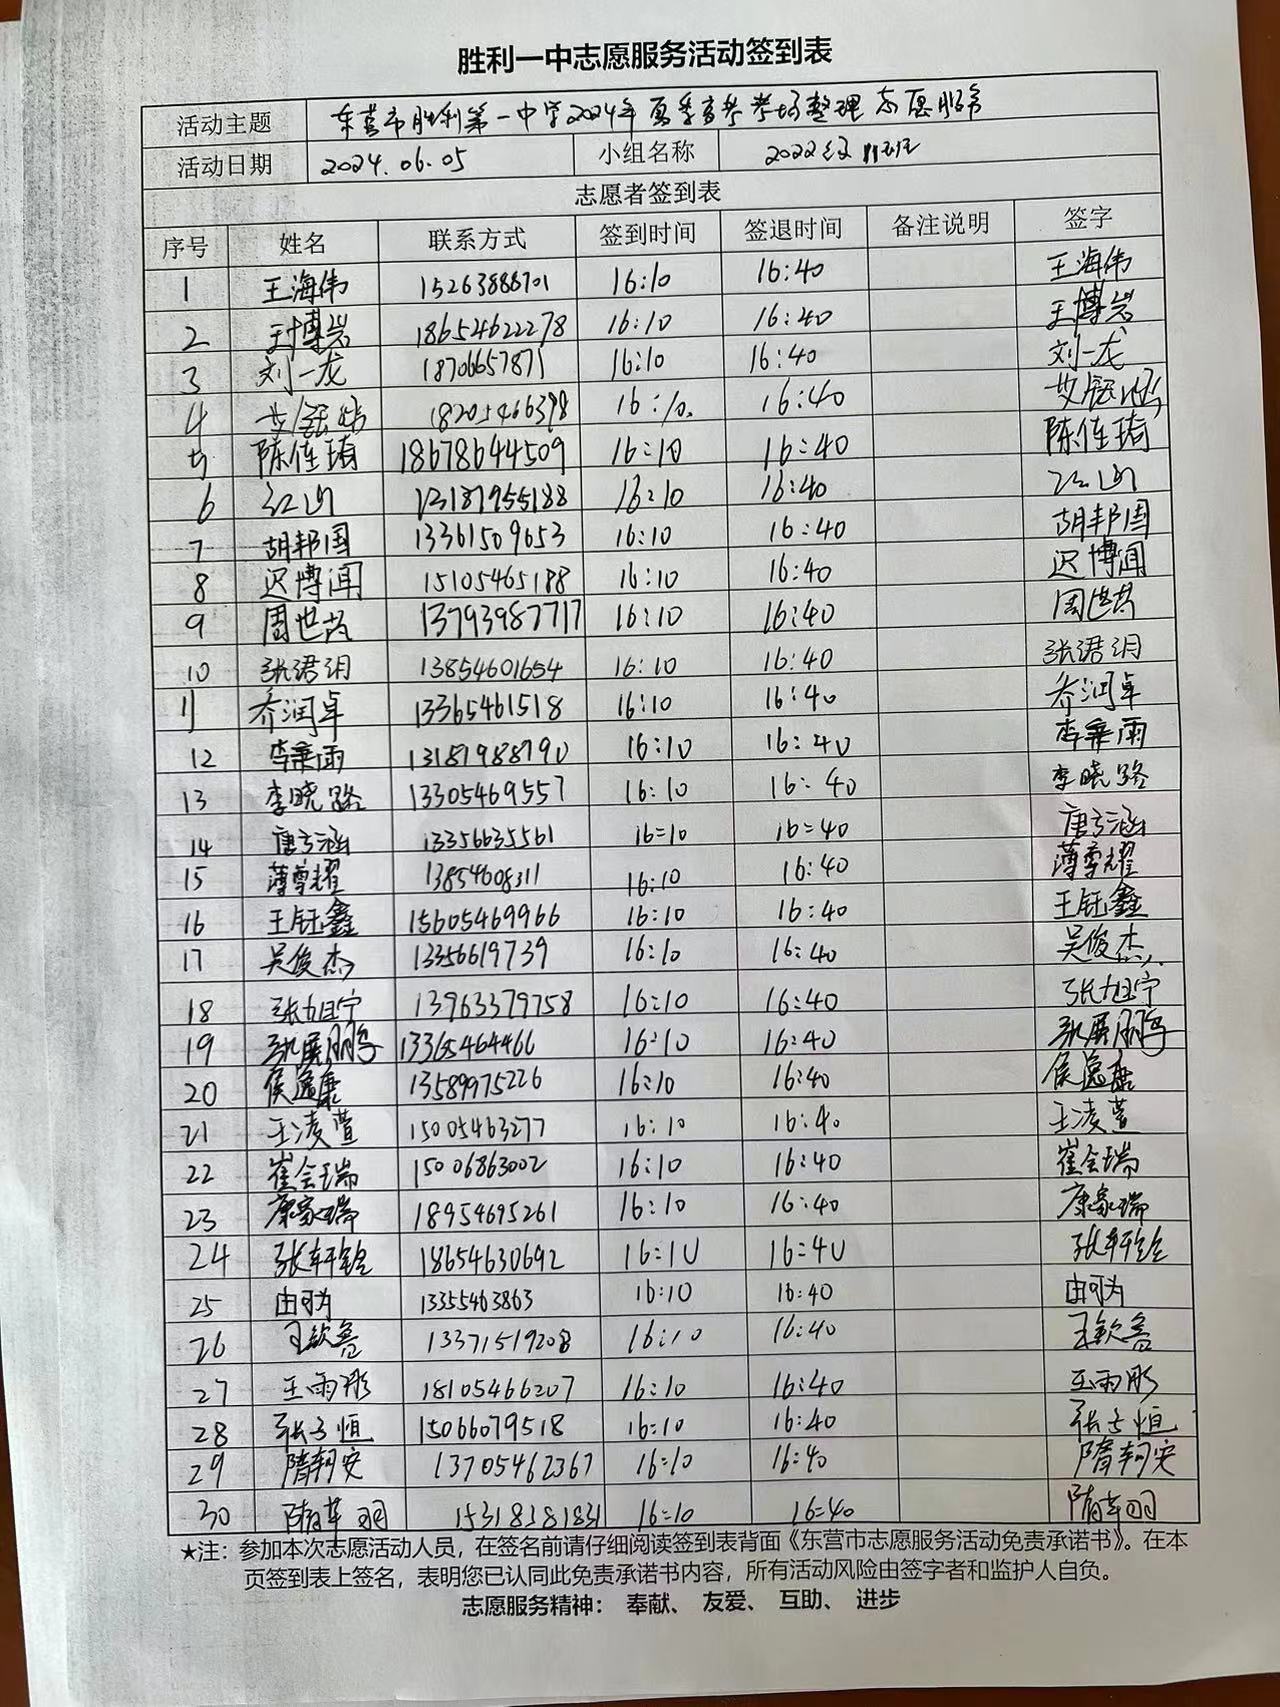 胜利一中志愿服务活动签到表
活动主题 东营市胜利第一中学2024年夏季高考考场整理志愿服务
活动日期 2024.06.05 小组名称 2022级11班
志愿者签到表
序号 姓名 联系方式 签到时间 签退时间 备注说明 签字
1 王海伟 15263888701 16:10 16:40 王海伟
2 王博岩 18654622278 16:10 16:40 王博岩
3 刘一龙 18706657871 16:10 16:40 刘一龙
4 18205466398 16:10 16:40
5 陈佳琦 18678644509 16:10 16:40 陈佳琦
6 13187955188 16:10 16:40
7 胡邦国 13361509653 16:10 16:40 胡邦国
8 迟博闻 15105465188 16:10 16:40 迟博闻
9 周世芳 13793987717 16:10 16:40 周世芳
10 张珺玥 13854601654 16:10 16:40 张珺玥
11 乔润卓 13365461518 16:10 16:40 乔润卓
12 李乘雨 13187988790 16:10 16:40 李乘雨
13 李晓路 13305469557 16:10 16:40 李晓路
14 唐子涵 13356635561 16:10 16:40 唐子涵
15 薄尊耀 13854608311 16:10 16:40 薄尊耀
16 王钰鑫 15605469966 16:10 16:40 王钰鑫
17 吴俊杰 13356619739 16:10 16:40 吴俊杰
18 张旭宁 13963379758 16:10 16:40 张旭宁
19 张展鹏 13365464466 16:10 16:40 张展鹏
20 侯逸康 13589975226 16:10 16:40 侯逸康
21 王凌萱 15005463277 16:10 16:40 王凌萱
22 崔会瑞 15006863002 16:10 16:40 崔会瑞
23 康家瑞 18954695261 16:10 16:40 康家瑞
24 张轩铨 18654630692 16:10 16:40 张轩铨
25 由可为 13355463863 16:10 16:40 由可为
26 王钦鲁 13371519208 16:10 16:40 王钦鲁
27 王雨彤 18105466207 16:10 16:40 王雨彤
28 张子恒 15066079518 16:10 16:40 张子恒
29 隋轲安 13705462367 16:10 16:40 隋轲安
30 隋卓羽 15318381831 16:10 16:40 隋卓羽
★注：参加本次志愿活动人员，在签名前请仔细阅读签到表背面《东营市志愿服务活动免责承诺书》。在本
页签到表上签名，表明您已认同此免责承诺书内容，所有活动风险由签字者和监护人自负。
志愿服务精神： 奉献、 友爱、 互助、 进步